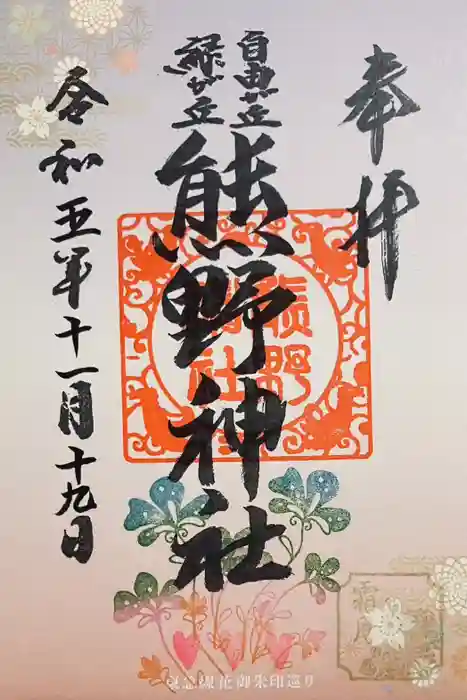 奉拝
自由が丘
緑が丘
熊野神社
令和五年十一月十九日
熊野神社
東急線花御朱印巡り